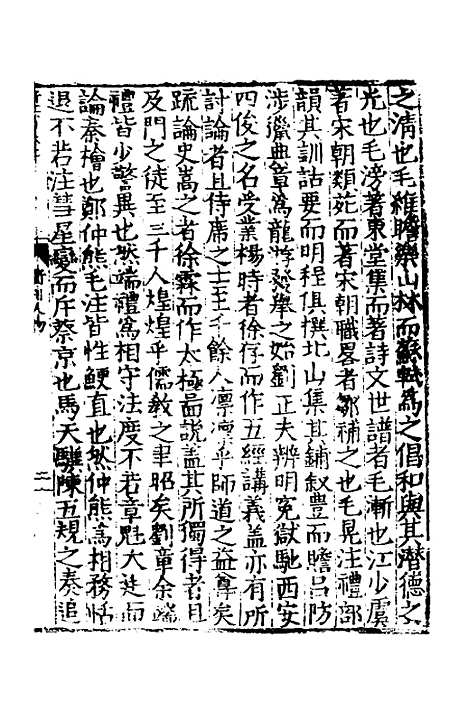 之清也毛維瞻樂山林而蘇軾爲之倡和與其潛德之
光也毛滂著東堂集而著詩文世譜者毛漸也江少虞
著宋朝類苑而著宋朝職畧者鄒補之也毛晃注禮部
韻其訓詁要而明程俱撰北山集其鋪叙豊而贍吕防
涉獵典章爲龍㷼發舉之始劉正夫辨明寃獄馳西安
四俊之名受業楊時者徐存而作五經講義盖亦有所
討論者且侍席之士至千餘人凛凛乎師道之益尊矣
䟽論史嵩之者徐霖而作太極啚說盖其所獨得者且
及門之徒至三千人煌煌乎儒教之聿昭矣劉章余端
禮皆少警異也然端禮爲相守法度不若章魁大廷而
論秦檜也鄭仲熊毛注皆性鯁直也然仲熊爲相務恬
退不若注彗星變而斥蔡京也馬天驥陳五規之奏追
人物
二